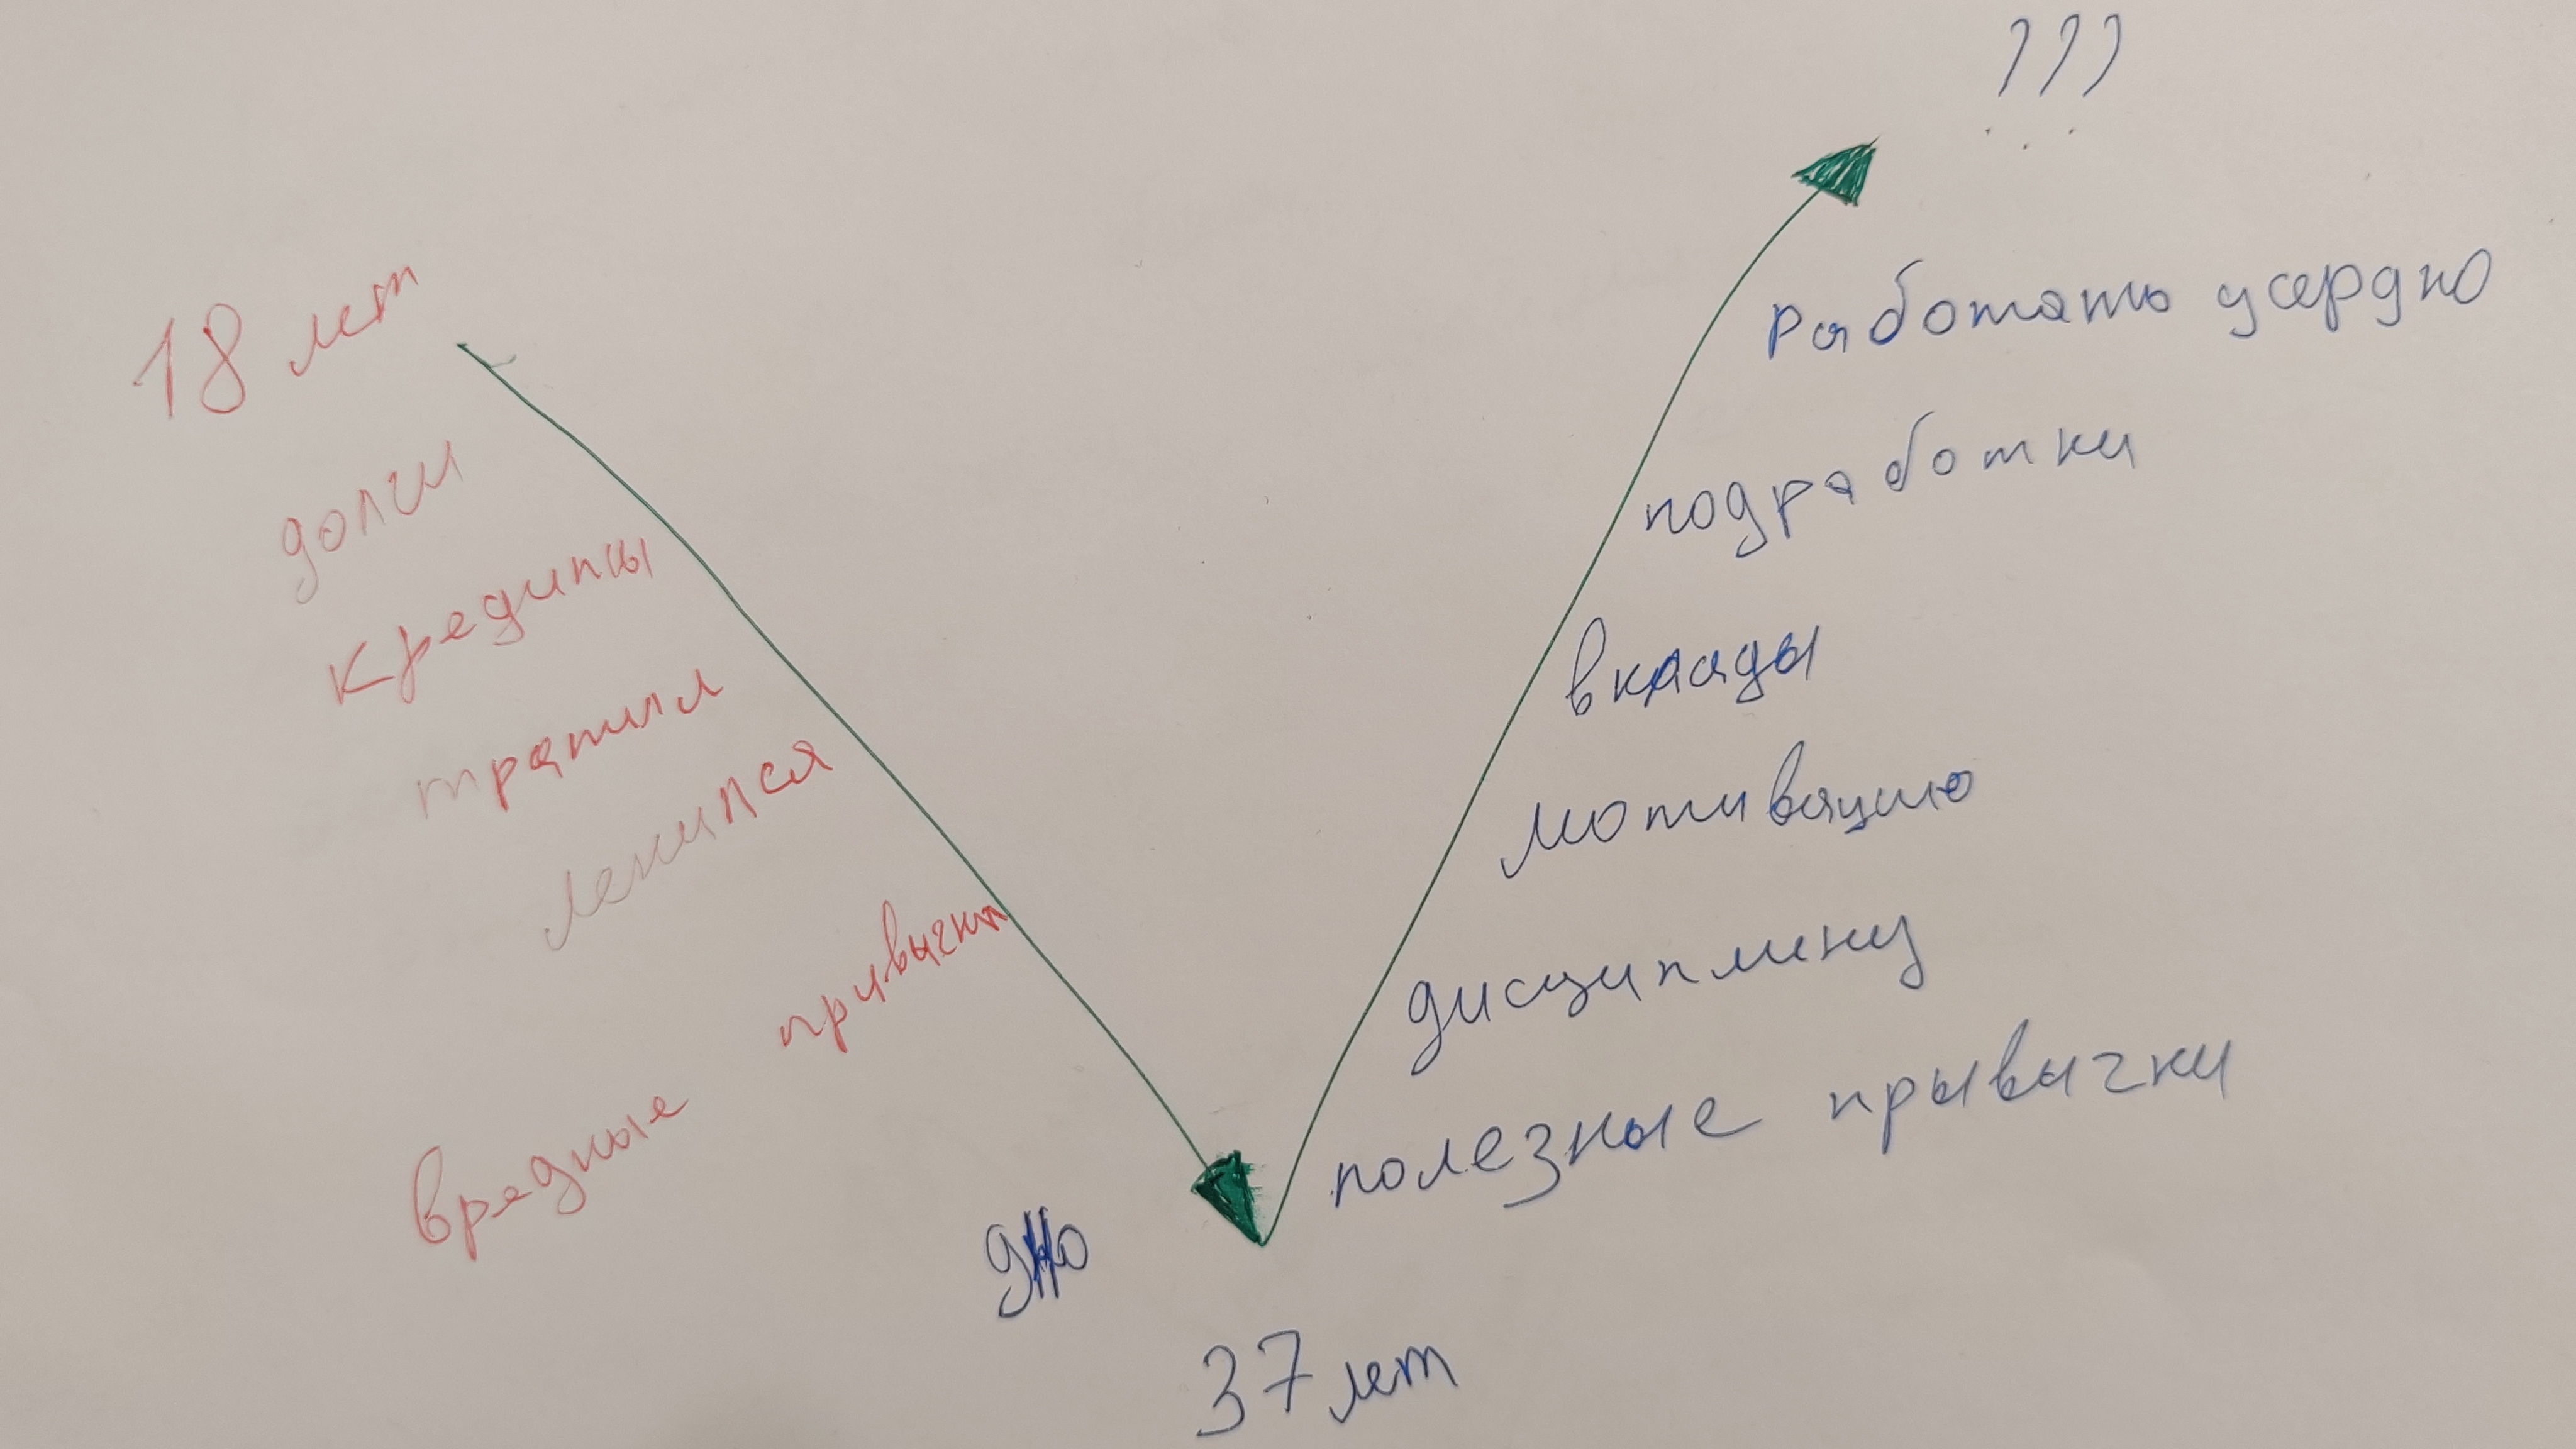 18 лет
долги
кредиты
тратил
ленился
вредные привычки
дно
37 лет
???
работать усердно
подработки
вклады
мотивацию
дисциплину
полезные прывычки